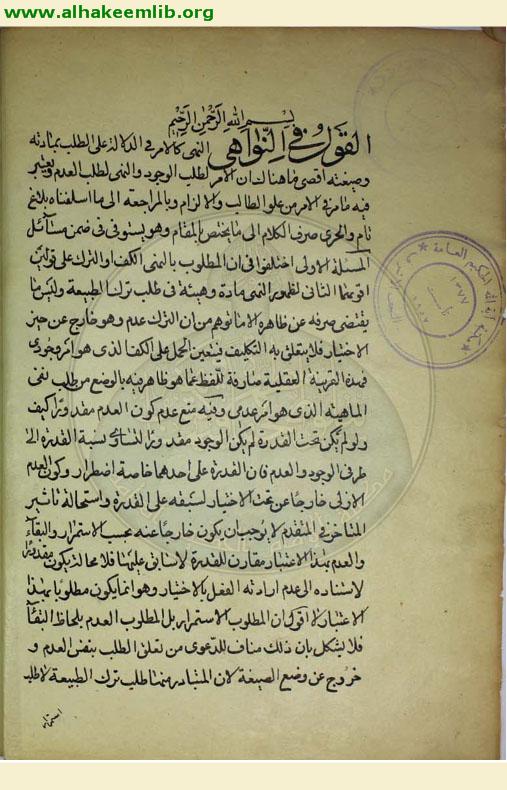 www.alhakeemlib.org
بسم الله الرحمن الرحيم
القول في النواهي النهي كالامر في الدلالة على الطلب بمادته
وصيغته اقصى ما هنالك ان الامر لطلب الوجود والنهي لطلب العدم ويعتبر
فيه ما مر في الامر من علو الطالب والالزام وبالمراجعة الى ما اسلفناه بلاغ
تام والحرى صرف الكلام الى ما يختص بالمقام وهو يستوفى في ضمن مسائل
المسئلة الاولى اختلفوا في ان المطلوب بالنهي الكف او الترك على قولين
اقويهما الثاني لظهور النهي مادة وهيئة في طلب ترك الطبيعة وليس ما
يقتضى صرفه عن ظاهره الا ما توهم من ان الترك عدم وهو خارج عن حيز
الاختيار فلا يتعلق به التكليف فيتعين الحمل على الكف الذى هو امر وجودى
فهذه القرينة العقلية صارفة للفظ عما هو ظاهر فيه بالوضع من طلب نفى
الماهية الذى هو امر عدمى وفيه منع عدم كون العدم مقدورا كيف
ولو لم يكن تحت القدرة لم يكن الوجود مقدورا لتساوى نسبة القدرة الى
طرفى الوجود والعدم فان القدرة على احدهما خاصة اضطرار وكون العدم
الازلى خارجا عن تحت الاختيار لسبقه على القدرة واستحالة تاثير
المتاخر في المتقدم لا يوجب ان يكون خارجا عنه بحسب الاستمرار والبقاء
والعدم بهذا الاعتبار مقارن للقدرة لا سابق عليها فلا محالة يكون مقدورا
لاستناده الى عدم ارادته الفعل بالاختيار وهو انما يكون مطلوبا بهذا
الاعتبار لا اقول ان المطلوب الاستمرار بل المطلوب العدم بلحاظ البقاء
فلا يشكل بان ذلك مناف للدعوى من تعلق الطلب بنفس العدم و
خروج عن وضع الصيغة لان المتبادر منها طلب ترك الطبيعة لا طلب